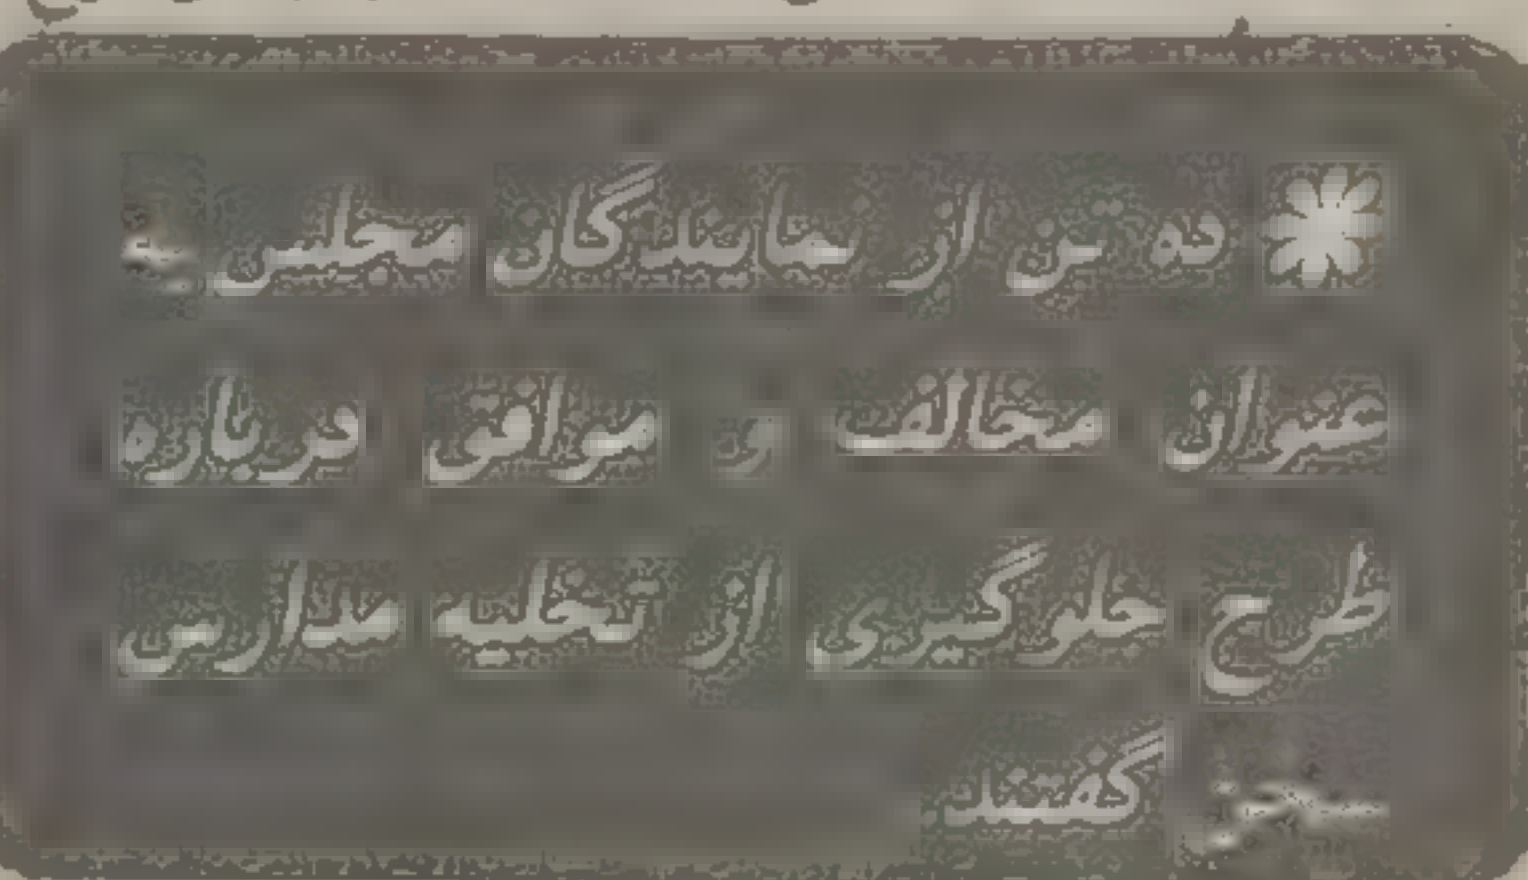 ده تن از نمایندگان مجلس به
عنوان مخالف و موافق درباره
طرح جلوگیری از تخلیه مدارس
سخن گفتند